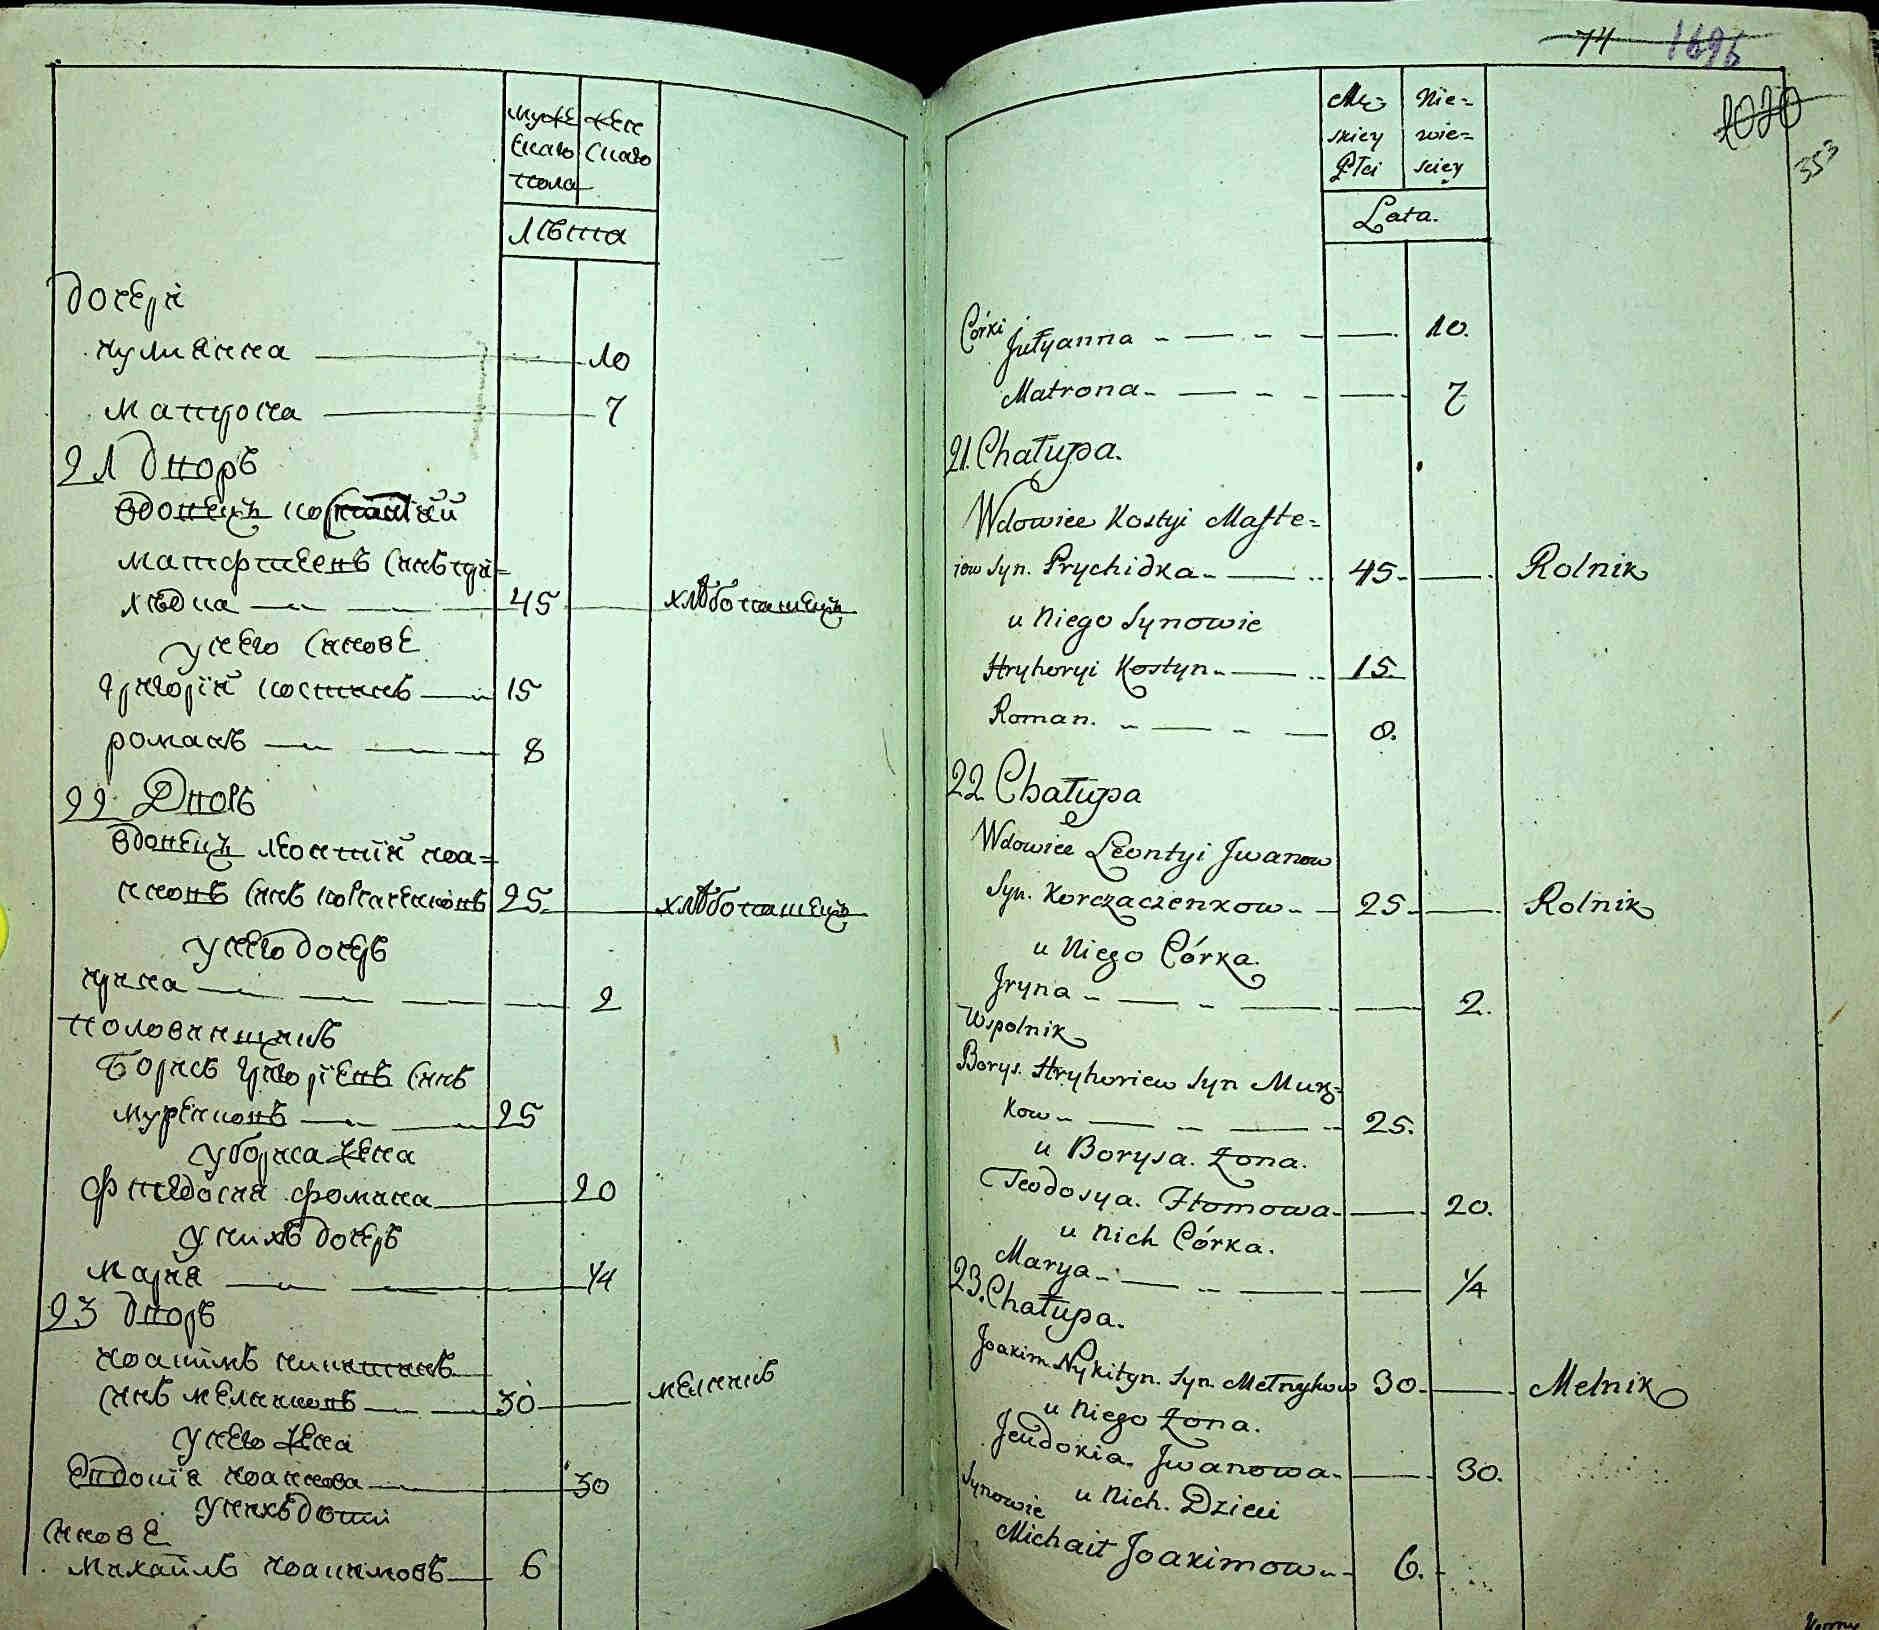 муже
жен
скаго
скаго
пола
лѣта
дочери
иулианна 10
матрона 7
21 дворъ
вдовецъ костантий
матфтеевъ синъ при=
хидка 45 хлѣбопашецъ
у него синове
григорїй костинъ 15
романъ 8
22 Дворъ
вдовецъ леонтїй иоа=
нновъ синъ корчаченковъ 25 хлѣбопашецъ
у него дочеръ
ирина 2
половинщикъ
Борисъ григорїевъ синъ
муренковъ 25
у бориса жена
фтеодосия фомина 20
у нихъ дочеръ
мария 1/4
23 дворъ
иоакимъ никитинъ
синъ мелниковъ 30 мелникъ
у него жена
Евдокїя иоаннова 30
у нихъ дѣти
синове
михаилъ иоакимовъ 6
74 1696
1020
353
Mę= Nie=
skiey wie=
Płci sciey
Lata.
Córki
Julyanna 10.
Matrona 7
21. Chałupa.
Wdowiec Kostyi Mafte=
iow Syn. Prychidka 45 Rolnik
u Niego Synowie
Hryhoryi Kostyn 15.
Roman. 8.
22 Chałupa
Wdowiec Leontyi Jwanow
Syn. Korczaczenkow 25 Rolnik
u Niego Córka.
Jryna 2.
Wspolnik
Borys. Hryhoriew Syn Mur=
kow 25.
u Borysa. Żona.
Teodosya. Ftomowa 20.
u Nich Córka.
Marya 1/4
23. Chałupa.
Joakim Nykityn. Syn. Melnykow 30. Melnik
u Niego Żona.
Jeudokia. Jwanowa 30.
u Nich. Dzieci
Synowie
Michait Joakimow 6.